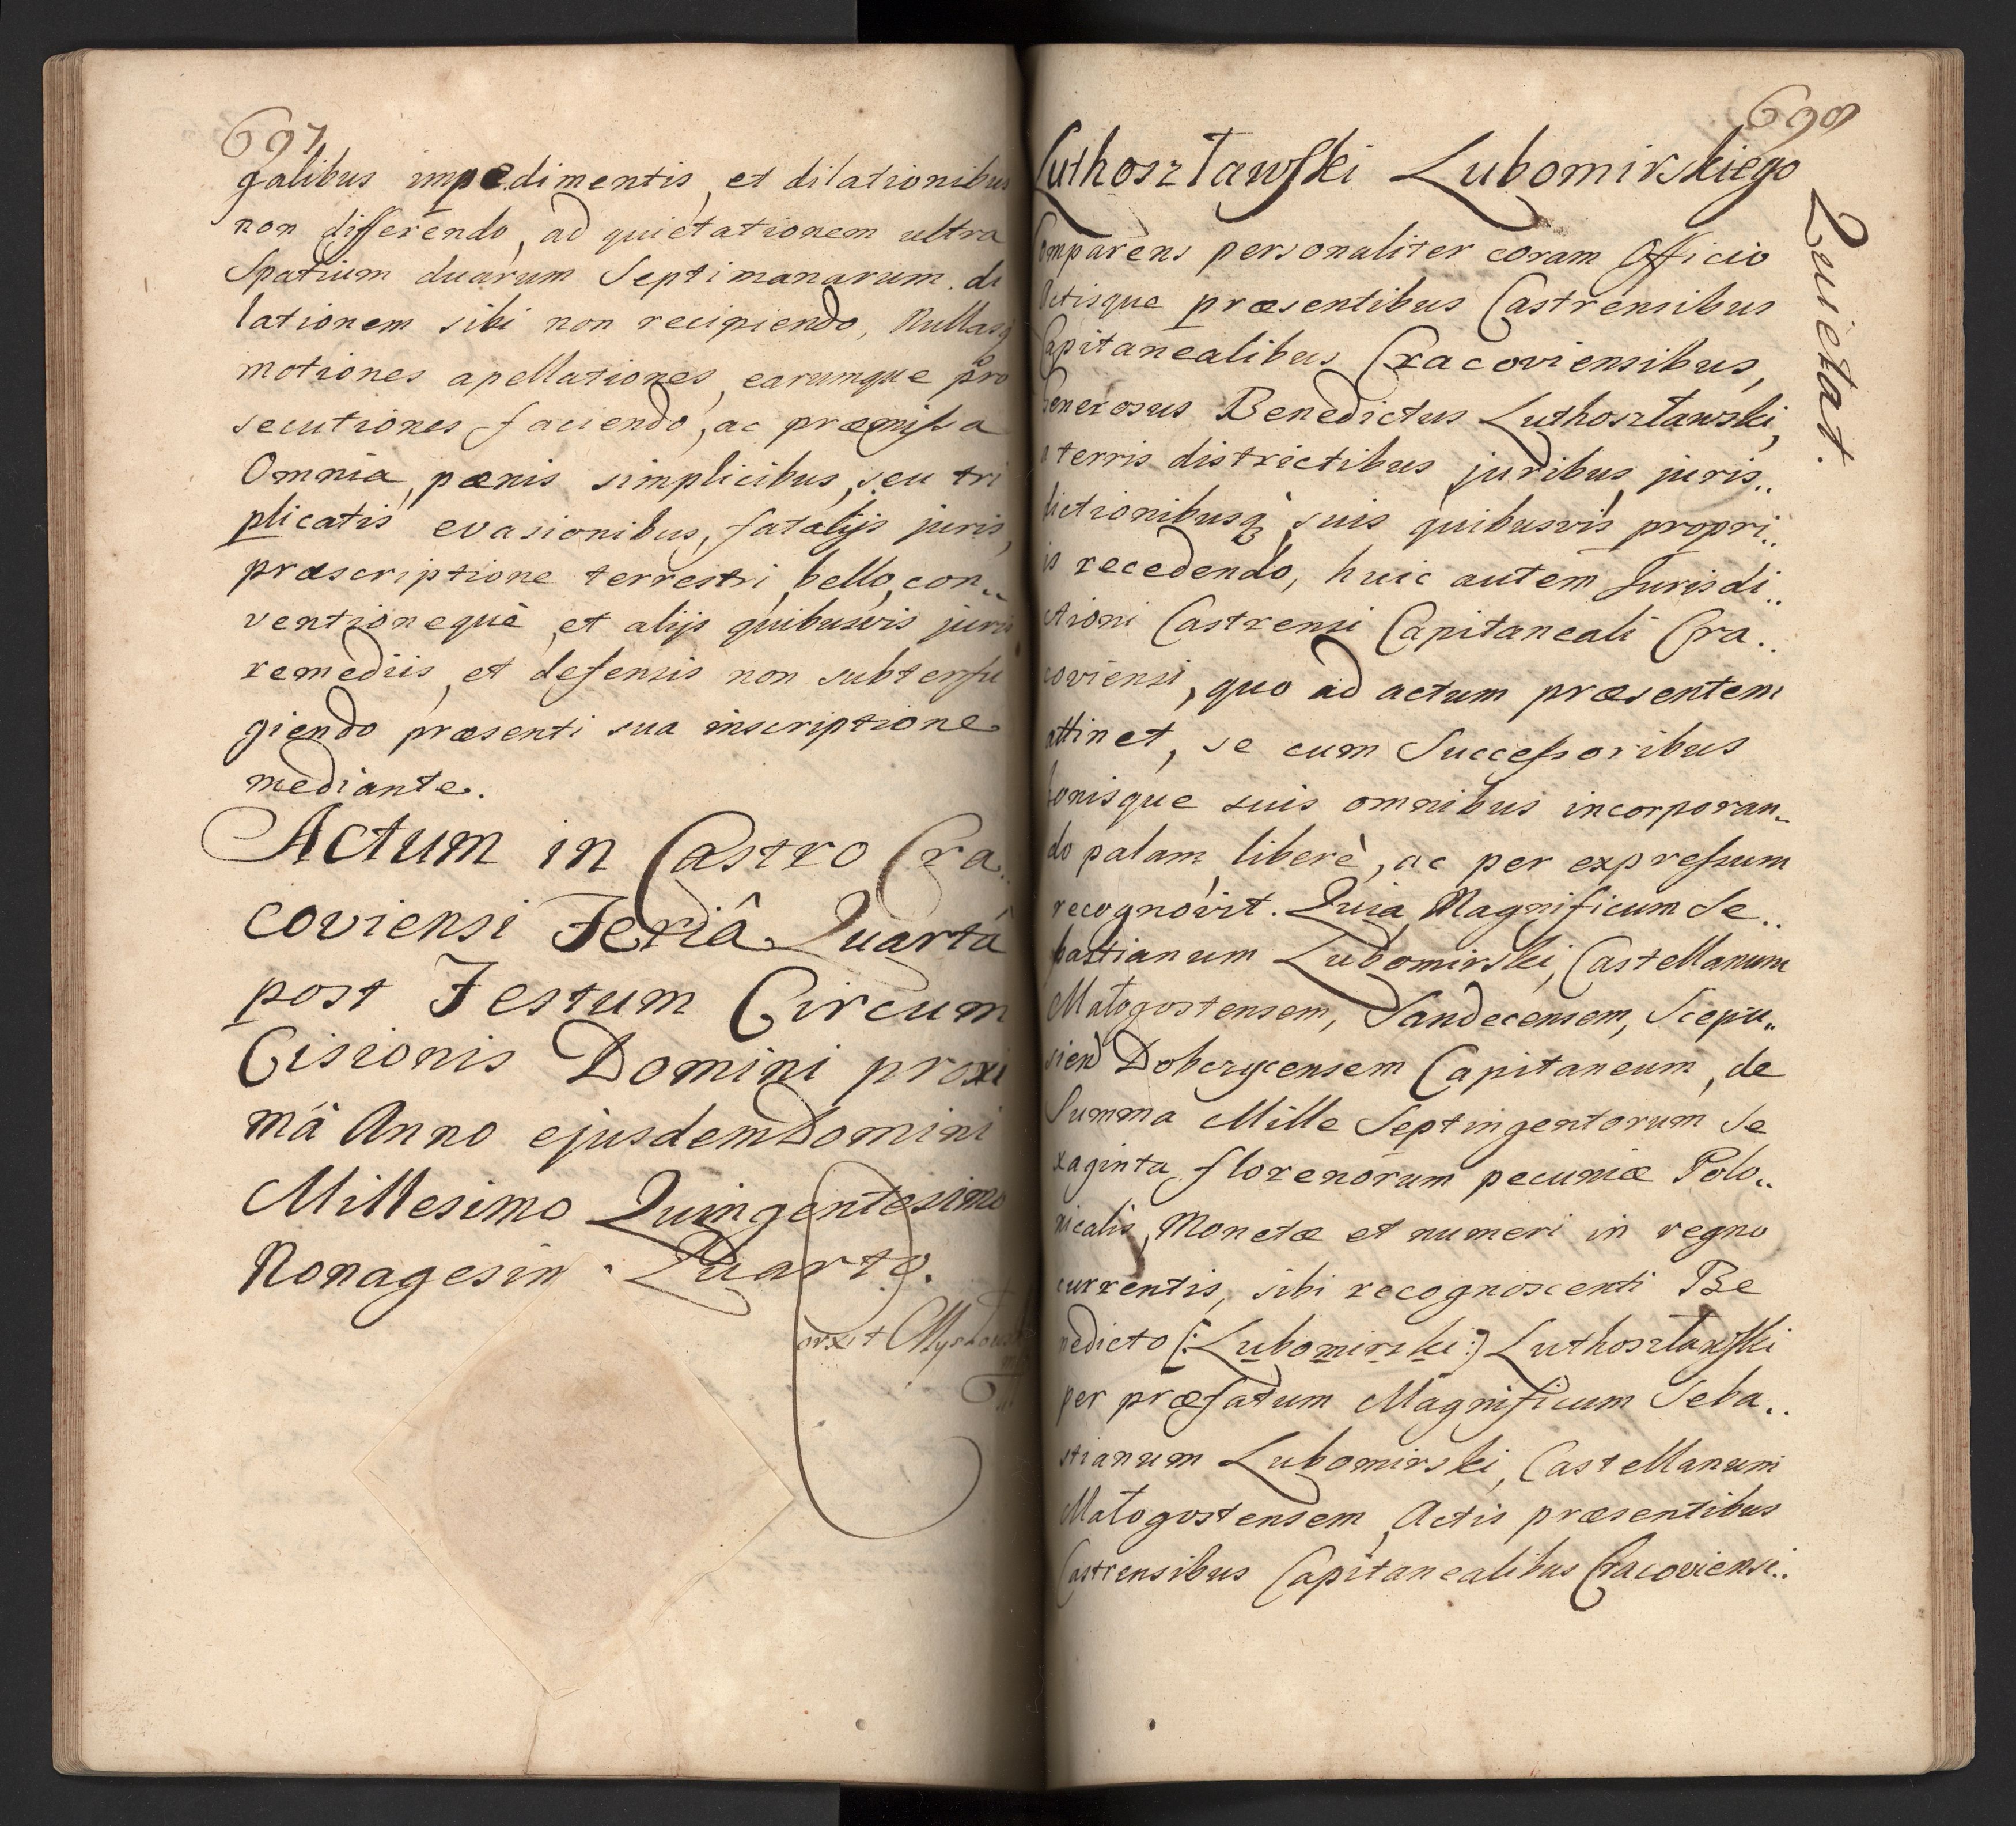 697
galibus impedimentis, et dilationibus
non differendo, ad quietationem ultra
Spatium duarum Septimanarum di
lationem sibi non recipiendo, Nullasq
motiones apellationes, earumque pro
secutiones faciendo, ac præmissa
Omnia, pœnis simplicibus, seu tri
plicatis evasionibus, fatalijs juris,
præscriptione terrestri, bello, con..
ventioneque, et alijs quibusvis juris
remediis, et defensis non subterfu
giendo præsenti sua inscriptione
mediante.
Actum in Castro Cra..
coviensi Feriâ Quartâ
post Festum Circum
Cisionis Domini proxi
mâ Anno ejusdem Domini
Millesimo Quingentesimo
Nonagesim Quarto.
698
Luthosztawski Lubomirskiego
Quietat.
Comparens personaliter coram Officio
Actisque præsentibus Castrensibus
Capitanealibus Cracoviensibus,
Generosus Benedictus Luthosztawski,
a terris districtibus juribus, juris..
dictionibusq suis quibusvis propri..
is recedendo, huic autem Jurisdi..
ctioni Castrensi Capitaneali Cra..
coviensi, quo ad actum præsentem
attinet, se cum Successoribus
bonisque suis omnibus incorporan..
do palam, liberè, ac per expressum
recognovit. Quia Magnificum Se..
bastianum Lubomirski, Castellanum
Małogostensem, Sandecensem, Scepu..
sien Dobczycensem Capitaneum, de
Summa Mille Septingentorum Se
xaginta florenorum pecuniæ Polo..
nicalis, Monetæ et numeri in regno
currentis, sibi recognoscenti Be
nedicto (:Lubomirski:) Luthosztawski
per præfatum Magnificum Seba..
stianum Lubomirski, Castellanum
Małogostensem, Actis præsentibus
Castrensibus Capitanealibus Cracoviensi..